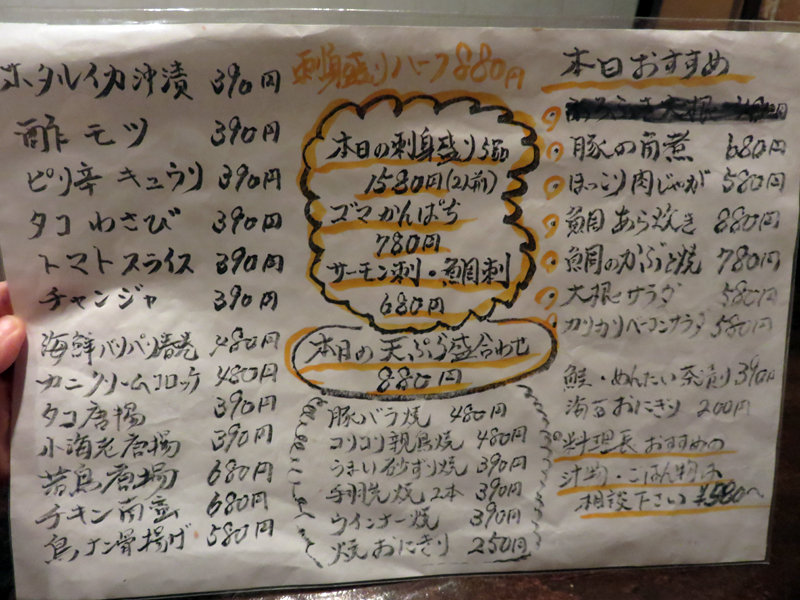 ホタルイカ沖漬 390円
酢モツ 390円
ピリ辛キュウリ 390円
タコわさび 390円
トマトスライス 390円
チャンジャ 390円
海鮮バリバリ春巻 480円
カニクリームコロッケ 480円
タコ唐揚 390円
小海老唐揚 390円
若鳥唐揚 680円
チキン南蛮 680円
鳥ナン骨揚げ 580円
刺身盛りハーフ880円
本日の刺身盛り5品
1580円(2人前)
ゴマかんぱち
780円
サーモン刺・鯛刺
680円
本日の天ぷら盛合わせ
880円
豚バラ焼 480円
コリコリ親鳥焼 480円
うまい砂ずり焼 390円
手羽先焼 2本 390円
ウインナー焼 390円
焼おにぎり 250円
本日おすすめ
豚の角煮 680円
ほっこり肉じゃが 580円
鯛あら炊き 880円
鯛のかぶと焼 780円
大根サラダ 580円
カリカリベーコンサラダ 580円
鮭・めんたい茶漬け 390円
海苔おにぎり 200円
料理長おすすめの
汁物・ごはん物は
相談下さい ¥580〜